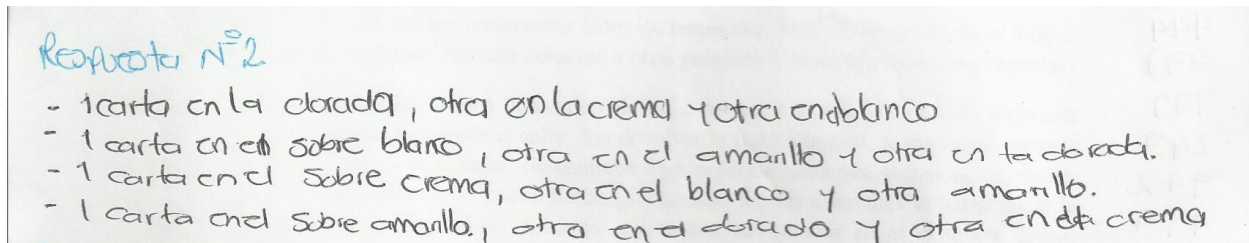 Respuesta Nº2
- 1 carta en la dorada, otra en la crema y otra en el blanco
- 1 carta en el sobre blano, otra en el amarillo y otra en la dorada.
- 1 carta en el sobre crema, otra en el blanco y otra amarillo.
- 1 carta en el sobre amarillo, otra en el dorado y otra en la crema